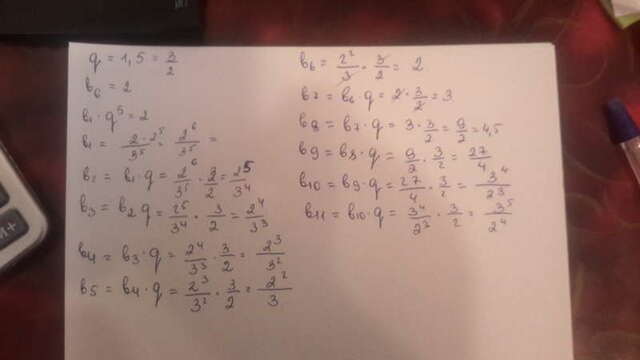 q = 1,5 = 3/2
b6 = 2
b1 · q^5 = 2
b1 = 2 · 2^5/3^5 = 2^6/3^5 =
b2 = b1 · q = 2^6/3^5 · 3/2 = 2^5/3^4
b3 = b2 q = 2^5/3^4 · 3/2 = 2^4/3^3
b4 = b3 · q = 2^4/3^3 · 3/2 = 2^3/3^2
b5 = b4 · q = 2^3/3^2 · 3/2 = 2^2/3
b6 = 2^2/3 · 3/2 = 2
b7 = b6 · q = 2 · 3/2 = 3
b8 = b7 · q = 3 · 3/2 = 9/2 = 4,5
b9 = b8 · q = 9/2 · 3/2 = 27/4
b10 = b9 · q = 27/4 · 3/2 = 3^4/2^3
b11 = b10 · q = 3^4/2^3 · 3/2 = 3^5/2^4
M+